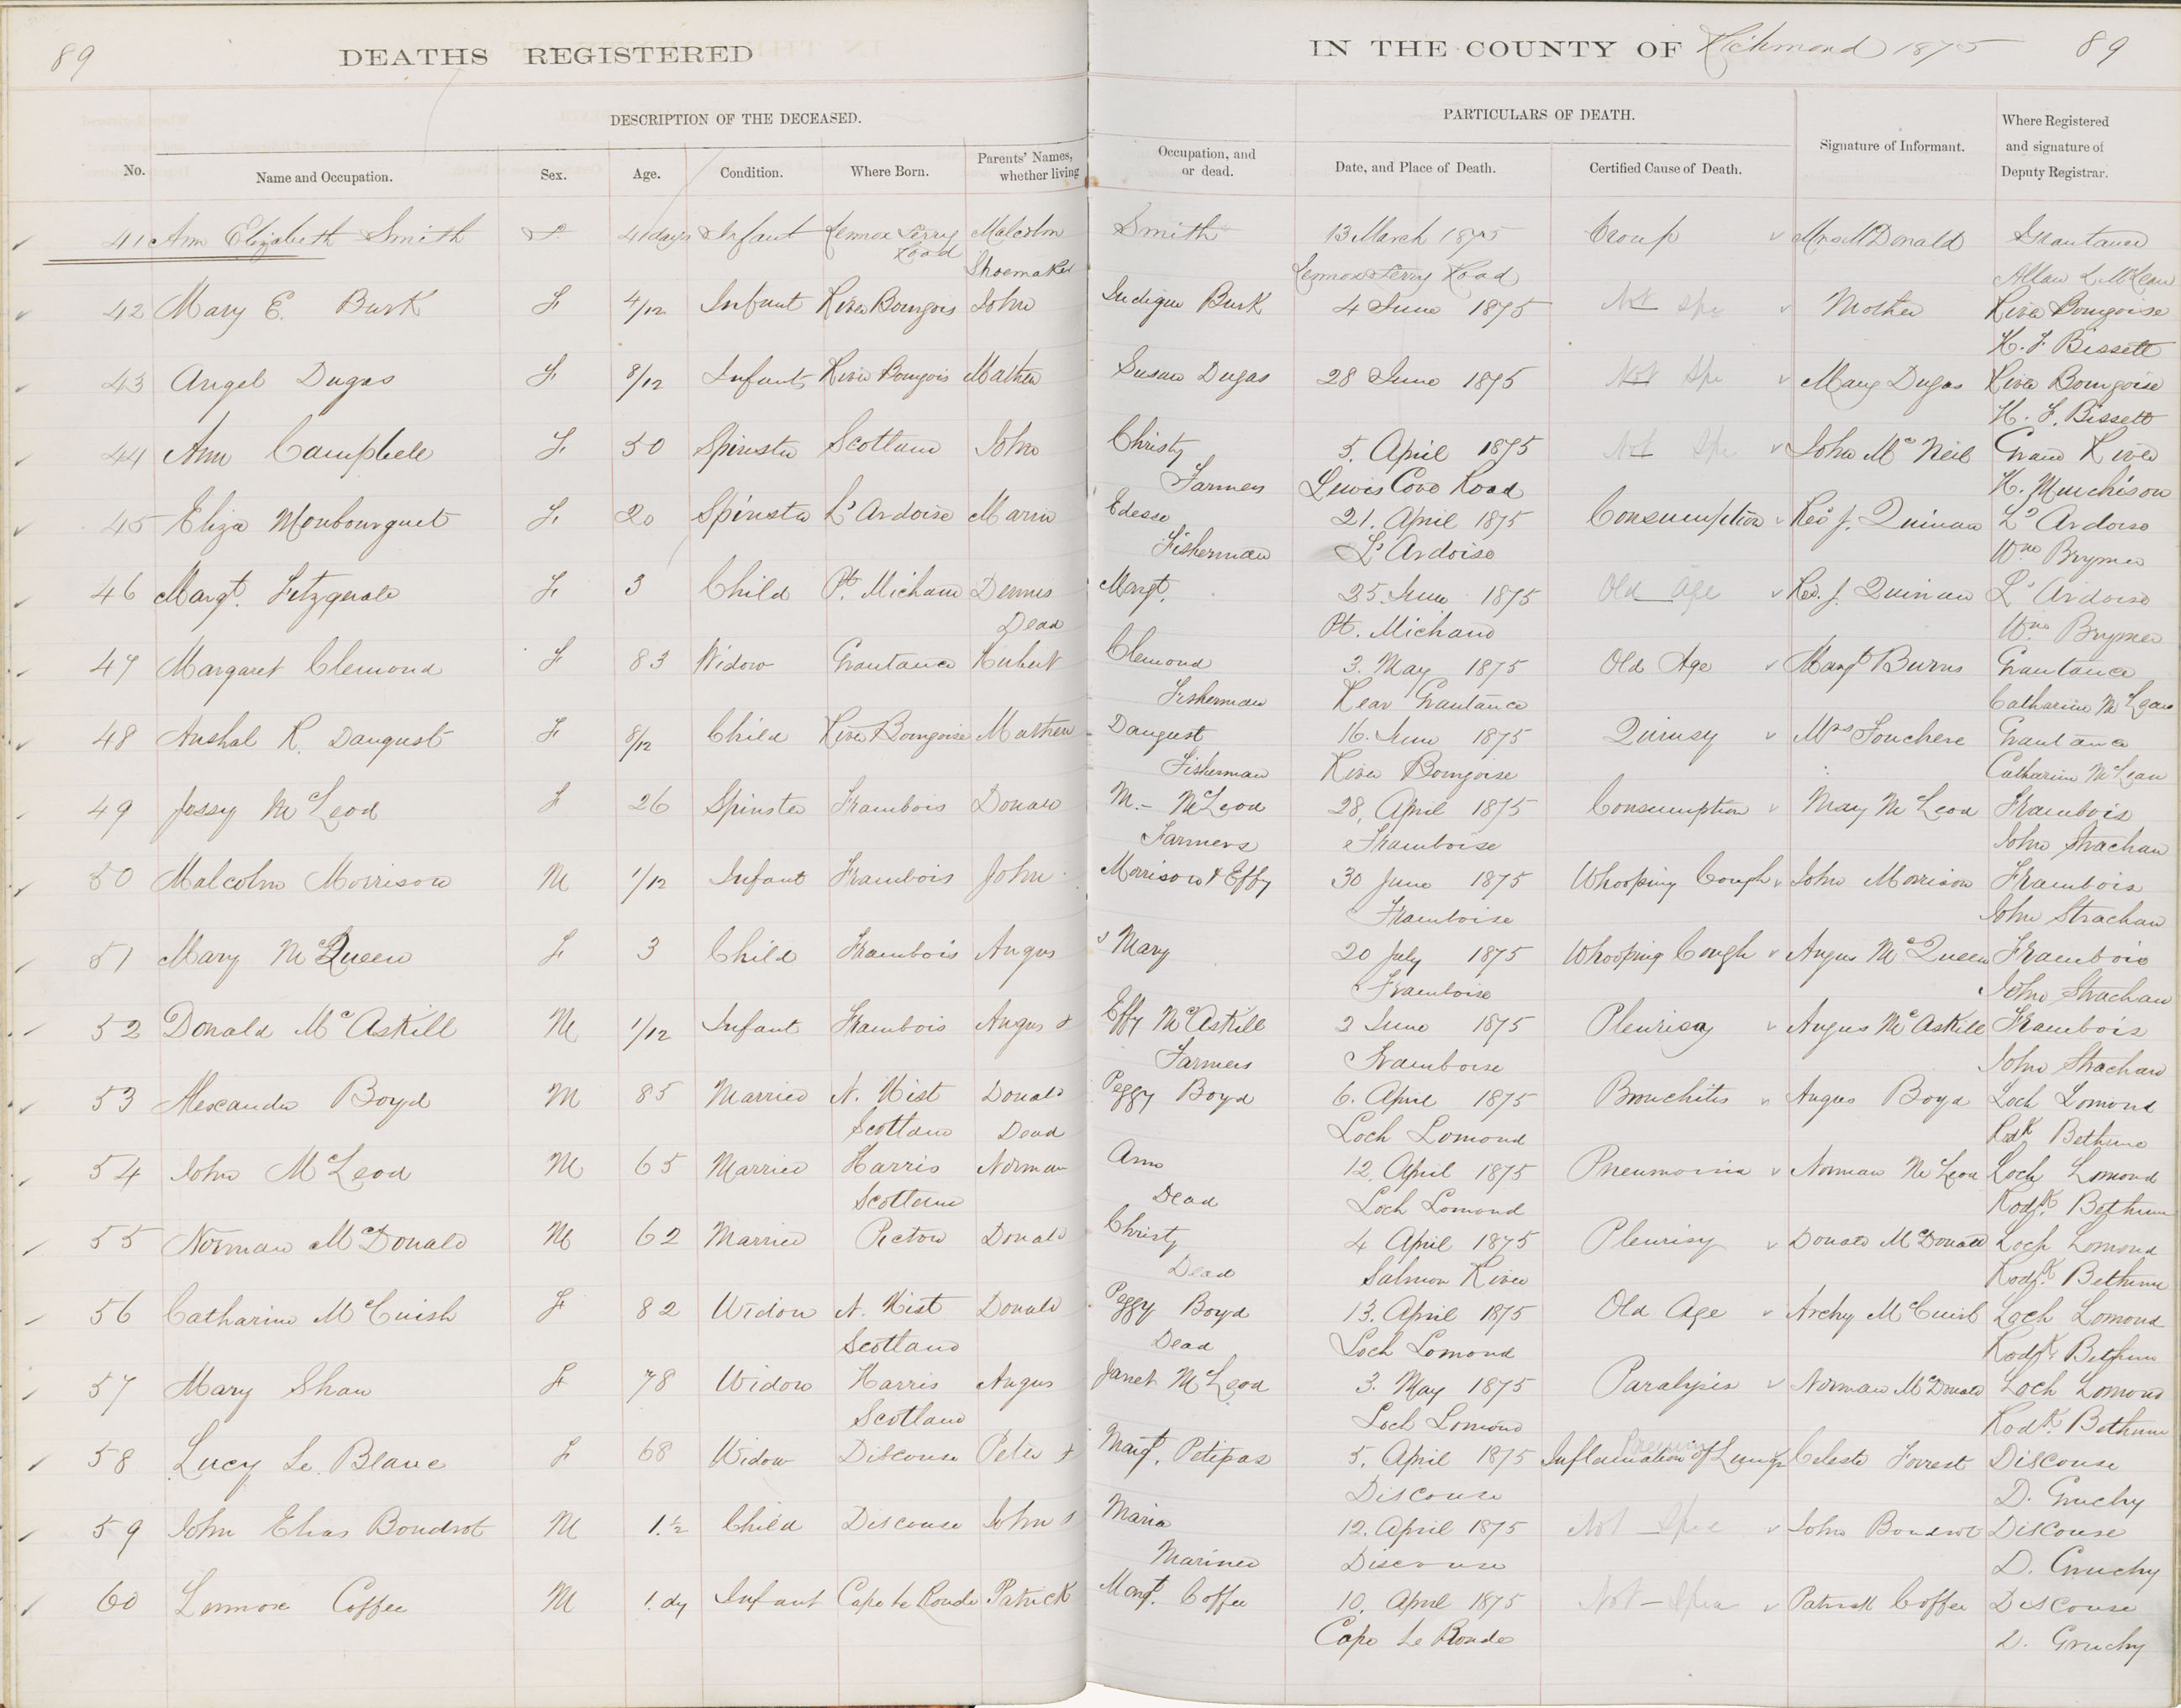 89 DEATHS REGISTERED IN THE COUNTY OF Richmond 1875 89
DESCRIPTION OF THE DECEASED. PARTICULARS OF DEATH.
No. Name and Occupation. Sex. Age. Condition. Where Born. Parents' Names, whether living Occupation, and or dead. Date, and Place of Death. Certified Cause of Death. Signature of Informant. Where Registered and signature of Deputy Registrar.
41 Ann Elizabeth Smith F 41 days Infant Lennox Ferry Malcolm Smith 13 March 1875 Croup Mrs McDonald Grantance
Road Shoemaker Lennox Ferry Road Allan L McLean
42 Mary E. Burk F 4/12 Infant River Bourgois John Judique Burk 4 June 1875 Not Spe Mother River Bourgoise
H. F. Bissett
43 Angel Dugas F 8/12 Infant River Bourgois Mathew Susan Dugas 28 June 1875 Not Spe Mary Dugas River Bourgoise
H. F. Bissett
44 Ann Campbell F 50 Spinster Scotland John Christy 5. April 1875 Not Spe John Mc Neil Grand River
Farmers Lewis Cove Road H. Murchison
45 Eliza Monbourquet F 20 Spinster L'Ardoise Marin Edesse 21. April 1875 Consumption Rev J. Quinan L'Ardoise
Fisherman L'Ardoise Wm Brymer
46 Margt. Fitzgerald F 3 Child Pt. Michaud Dennis Margt. 25. June 1875 Old Age Rev. J. Quinan L'Ardoise
Dead Pt. Michaud Wm Brymer
47 Margaret Clemond F 83 Widow Grantance Hubert Clemond 3. May 1875 Old Age Margt Burns Grantance
Fisherman Rear Grantance Catharine McLean
48 Anshal R. Daugust F 8/12 Child River Bourgoise Mathew Daugust 16. June 1875 Quinsy Mrs Fouchere Grantance
Fisherman River Bourgoise Catharine McLean
49 Jessy McLeod F 26 Spinster Frambois Donald M.- McLeod 28, April 1875 Consumption Mary McLeod Frambois
Farmers Framboise John Strachan
50 Malcolm Morrison M 1/12 Infant Frambois John Morrison & Effy 30 June 1875 Whooping Cough John Morrison Frambois
Framboise John Strachan
51 Mary McQueen F 3 Child Frambois Angus & Mary 20 July 1875 Whooping Cough Angus McQueen Frambois
Framboise John Strachan
52 Donald McAskill M 1/12 Infant Frambois Angus & Effy McAskill 2 June 1875 Pleurisy Angus McAskill Frambois
Farmers Framboise John Strachan
53 Alexander Boyd M 85 Married N. Uist Donald Peggy Boyd 6. April 1875 Bronchitis Angus Boyd Loch Lomond
Scotland Dead Loch Lomond Rodk Bethune
54 John McLeod M 65 Married Harris Norman Ann 12. April 1875 Pneumonia Norman McLeod Loch Lomond
Scotland Dead Loch Lomond Rodk. Bethune
55 Norman McDonald M 62 Married Pictou Donald Christy 4 April 1875 Pleurisy Donald McDonald Loch Lomond
Dead Salmon River Rodk Bethune
56 Catharine McCuish F 82 Widow N. Uist Donald Peggy Boyd 13. April 1875 Old Age Archy McCuish Loch Lomond
Scotland Dead Loch Lomond Rodk Bethune
57 Mary Shaw F 78 Widow Harris Angus Janet McLeod 3. May 1875 Paralysis Norman McDonald Loch Lomond
Scotland Loch Lomond Rodk. Bethune
58 Lucy Le Blanc F 68 Widow Discouse Peter & Margt. Petipas 5. April 1875 Inflamation of Lungs Celeste Forrest Discouse
Discouse D. Gruchy
59 John Elias Boudrot M 1.½ Child Discouse John & Maria 12. April 1875 Not Spec John Boudrot Discouse
Mariner Discouse D. Gruchy
60 Lennox Coffee M 1. dy Infant Cape Le Ronde Patrick Margt. Coffee 10. April 1875 Not Spec Patrick Coffee Discouse
Cape Le Ronde D. Gruchy